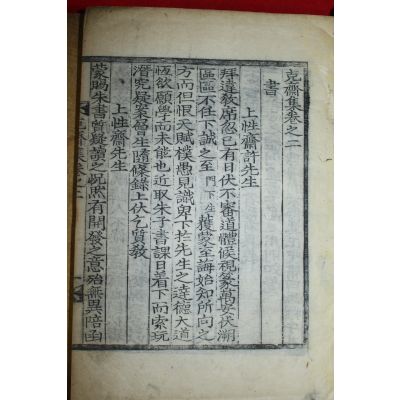 克齋集卷之二
書
上性齋許先生
拜違敎席忽已有日伏不審道體候視篆萬安伏溯
區區不任下誠之至門下生獲蒙至誨始知所向之
方而但恨天賦樸愚見識卑下於先生之達德大道
恆欲願學而未能也近取朱子書課日看下而索玩
潛究疑案留生隨條錄上伏乞質敎
上性齋先生
蒙賜朱書質疑讀之怳然有開發之意殆無異陪函